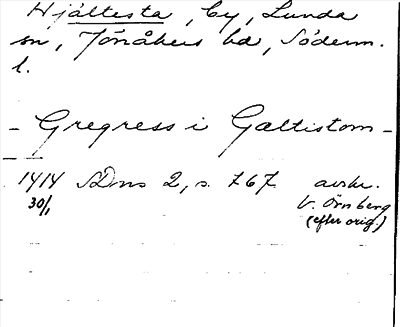 Hjältesta, by, Lunda
sn, Jönåkers hd, Söderm.
l.
- Gregress i Gæltistom -
1414 SDns 2, s. 767 avskr.
30/1 V. Örnberg
(efter orig.)